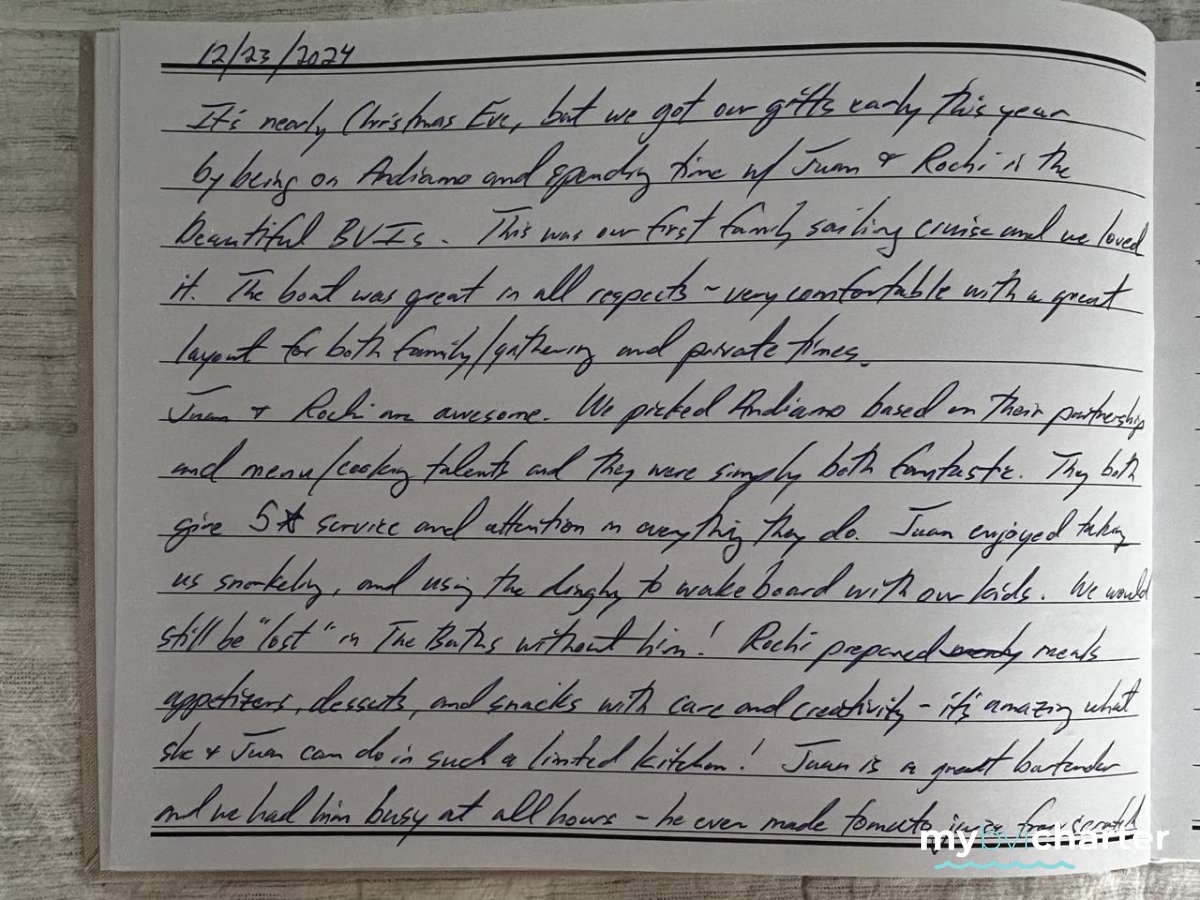 12/23/2024
It's nearly Christmas Eve, but we got our gifts early this year
by being on Andiamo and spending time w/ Juan & Rochi in the
beautiful BVIs. This was our first family sailing cruise and we loved
it. The boat was great in all respects ~ very comfortable with a great
layout for both family/gathering and private times.
Juan & Rochi are awesome. We picked Andiamo based on their partnership
and menu/cooking talents and they were simply both fantastic. They both
give 5☆ service and attention in everything they do. Juan enjoyed taking
us snorkeling, and using the dinghy to wakeboard with our kids. We would
still be "lost" in The Baths without him! Rochi prepared meals
appetizers, desserts, and snacks with care and creativity - it's amazing what
she & Juan can do in such a limited kitchen! Juan is a great bartender
and we had him busy at all hours - he even made tomato juice from scratch
mybvicharter